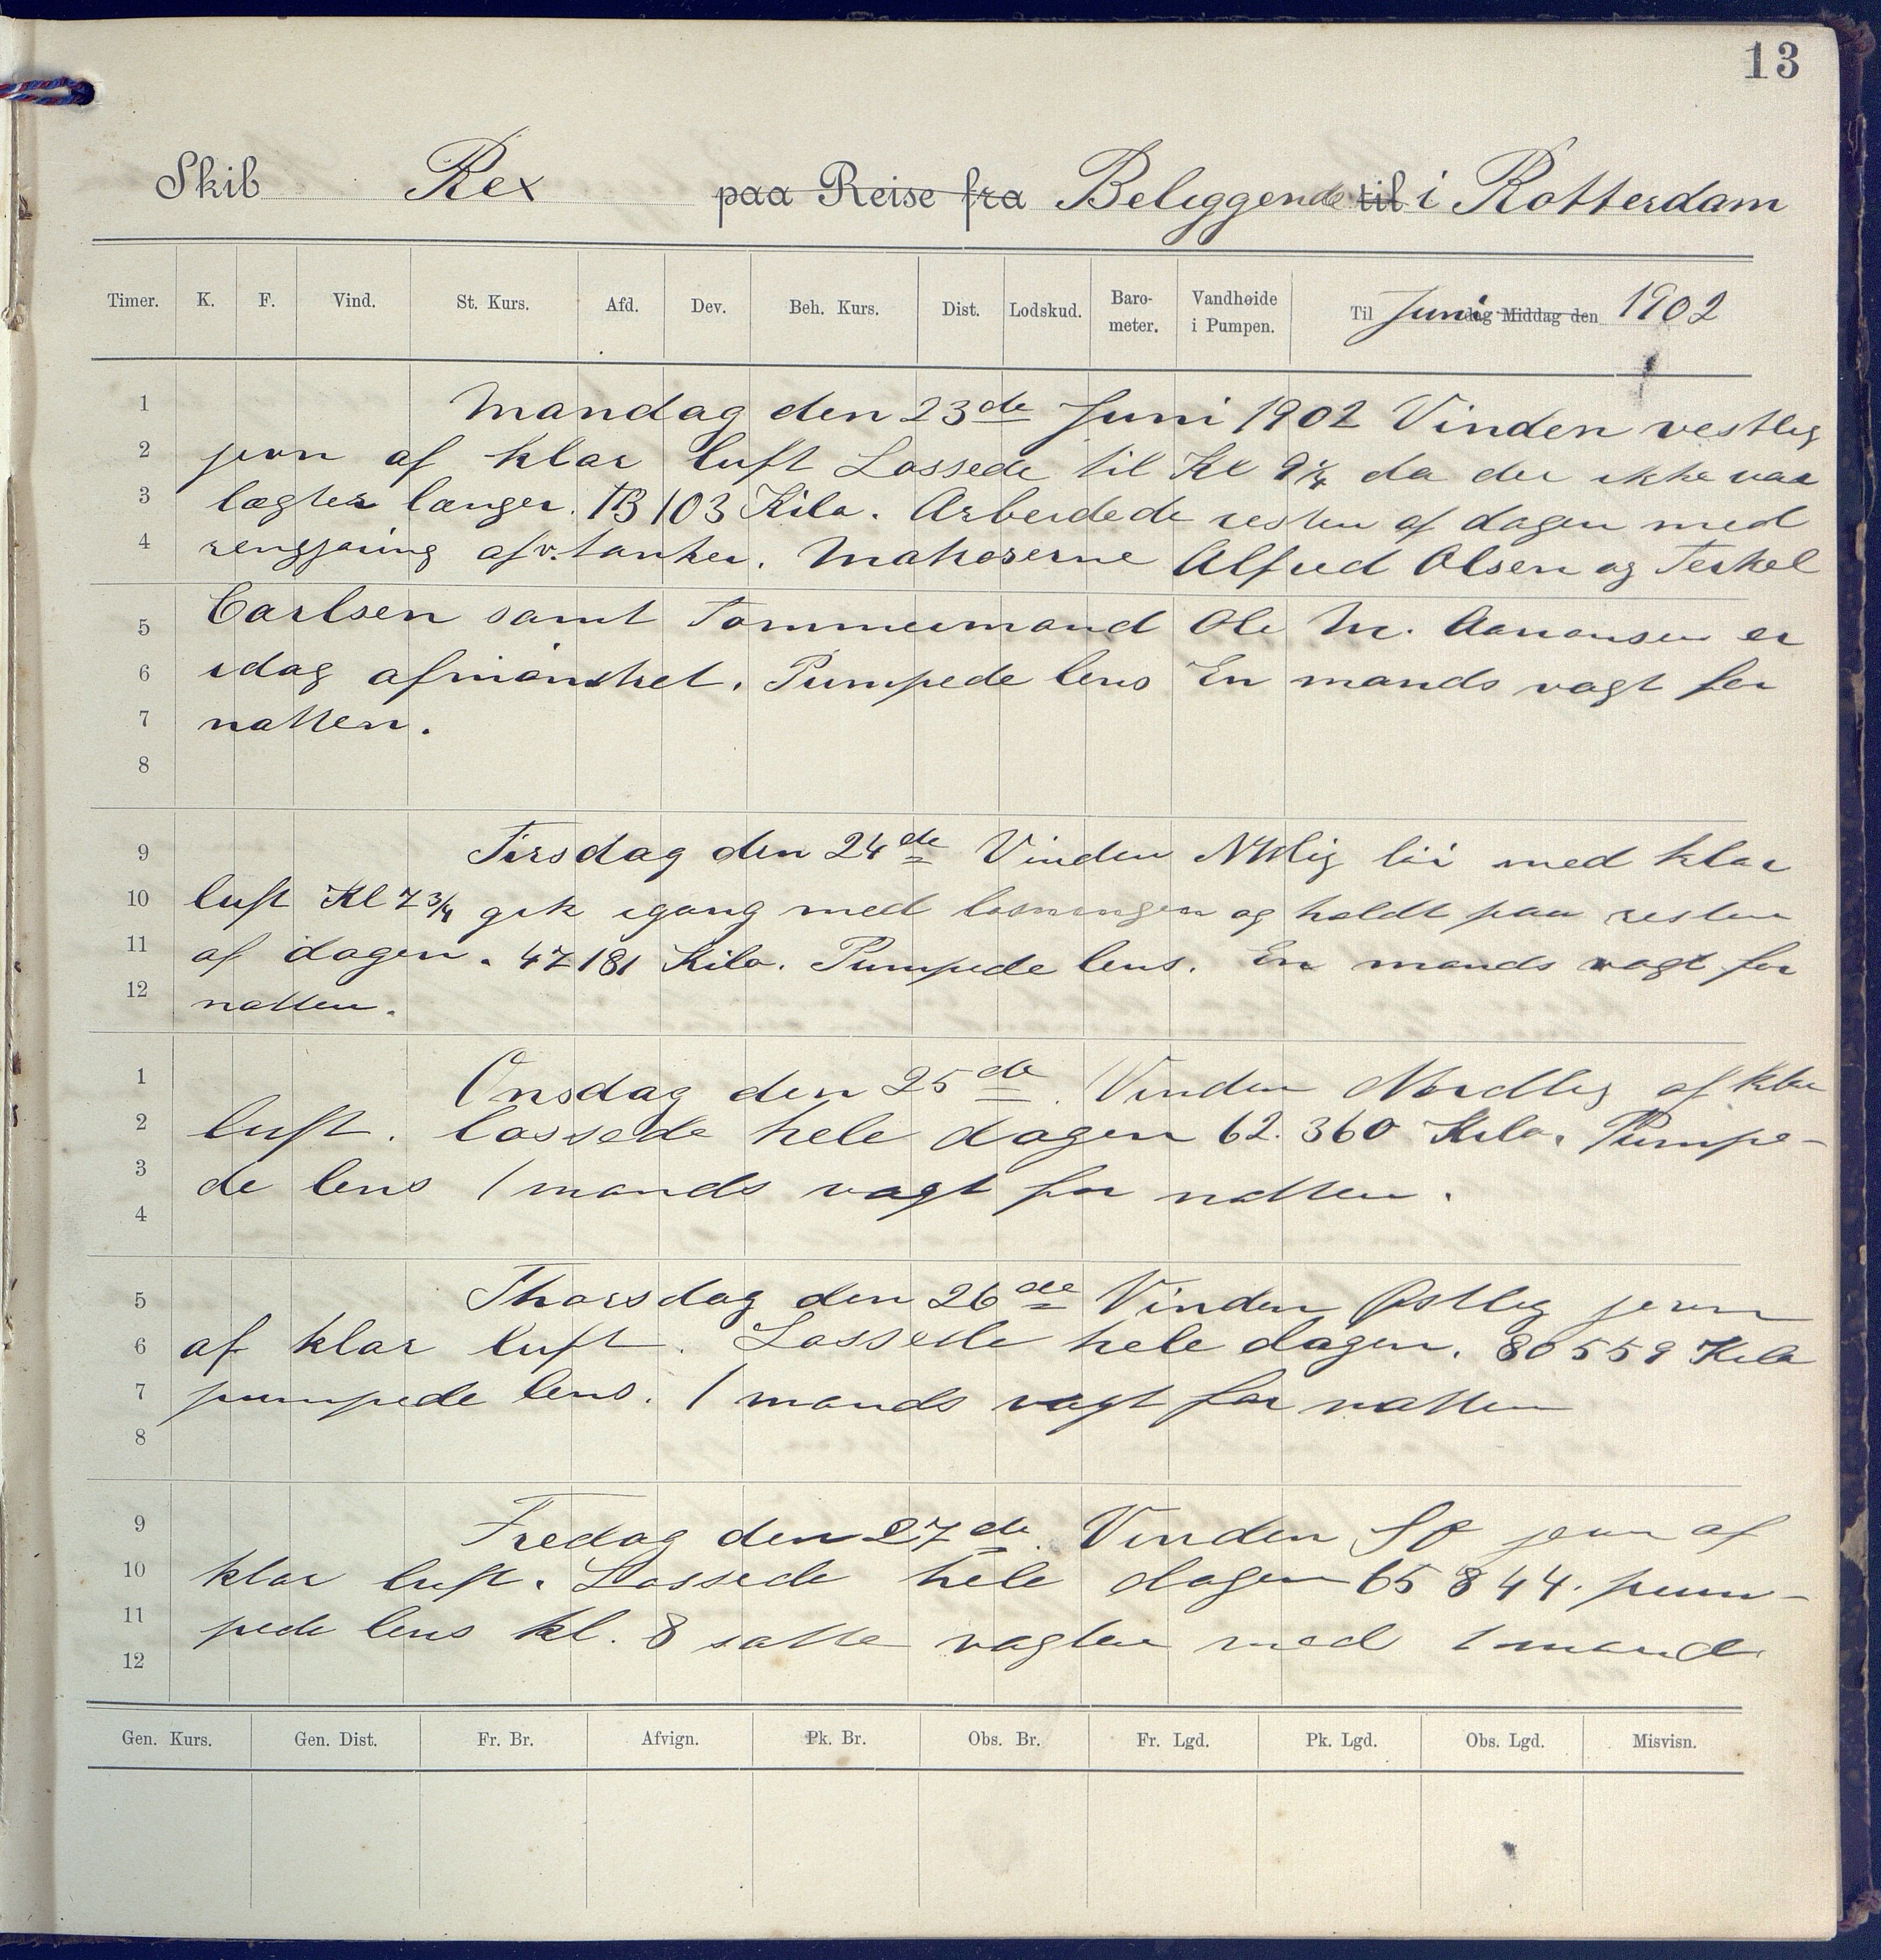 13
Skib Rex paa Reise fra Beliggende til i Rotterdam
Timer. K. F. Vind. St. Kurs. Afd. Dev. Beh. Kurs. Dist. Lodskud. Baro-meter. Vandhøide i Pumpen. Til Juni dag Middag den 1902
1 Mandag den 23de Juni 1902 Vinden vestlig
2 jevn af klar luft Lossede til Kl 9¼ da der ikke var
3 lægter længer. 13103 Kilo. Arbeidede resten af dagen med
4 rengjøring af v.tanker. Matroserne Alfred Olsen og Terkel
5 Carlsen samt Tømmermand Ole M. Aanonsen er
6 idag afmønstret. Pumpede lens En mands vagt for
7 natten.
8
9 Tirsdag den 24de Vinden NVlig med klar
10 luft Kl 7¾ gik igang med losningen og holdt paa resten
11 af dagen. 47181 Kilo. Pumpede lens. En mands vagt for
12 natten.
1 Onsdag den 25de. Vinden Nordlig af klar
2 luft. lossede hele dagen 62.360 Kilo. Pumpe-
3 de lens 1 mands vagt for natten.
4
5 Thorsdag den 26de Vinden Østlig jevn
6 af klar luft. Lossede hele dagen. 80559 Kilo
7 pumpede lens. 1 mands vagt for natten
8
9 Fredag den 27de. Vinden SO jevn af
10 klar luft. Lossede hele dagen 65844. pum-
11 pede lens kl. 8 satte vagten med 1 mand.
12
Gen. Kurs. Gen. Dist. Fr. Br. Afvign. Pk. Br. Obs. Br. Fr. Lgd. Pk. Lgd. Obs. Lgd. Misvisn.